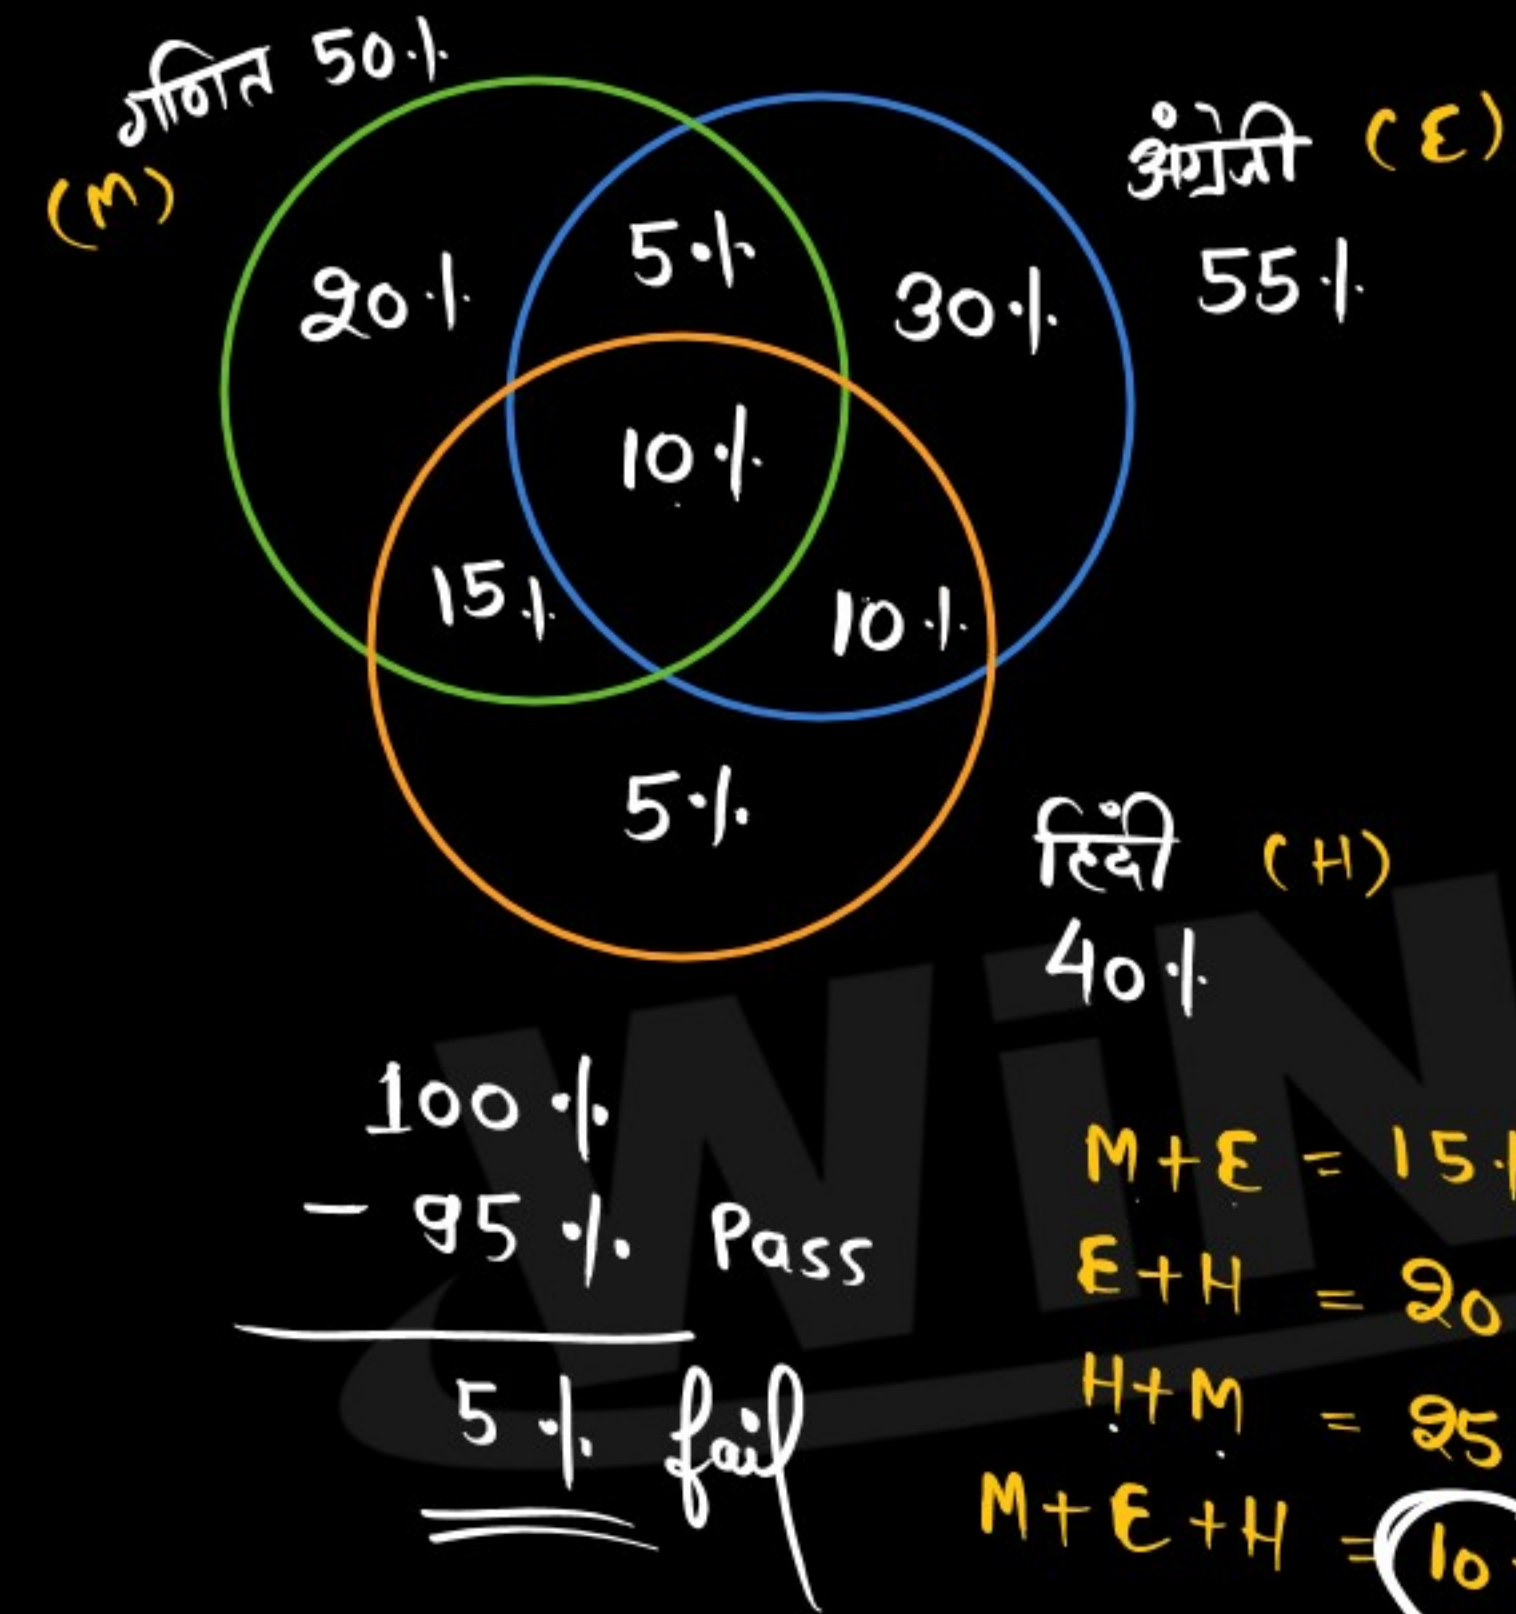 गणित 50%
(M)
अंग्रेजी (E)
55%
20%
5%
30%
10%
15%
10%
5%
हिंदी (H)
40%
100%
- 95% Pass
5% fail
M+E = 15%
E+H = 20
H+M = 25
M+E+H = 10
WiN